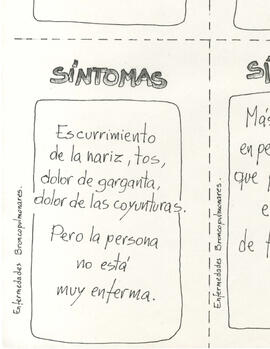 SÍNTOMAS
Escurrimiento
de la nariz, tos,
dolor de garganta,
dolor de las coyunturas.
Pero la persona
no está
muy enferma.
Enfermedades Broncopulmonares.
SÍ
Más
en pe
que p
e
de t
Enfermedades Broncopulmonares.